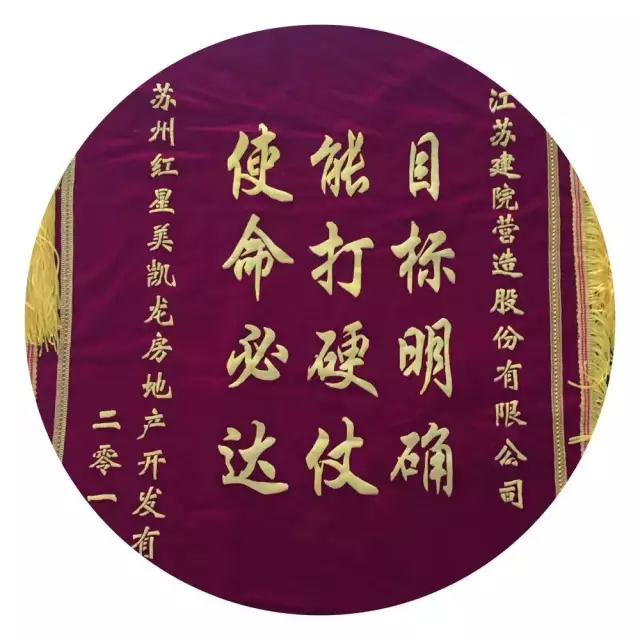 江苏建院营造股份有限公司
目标明确
能打硬仗
使命必达
苏州红星美凯龙房地产开发有
二零一